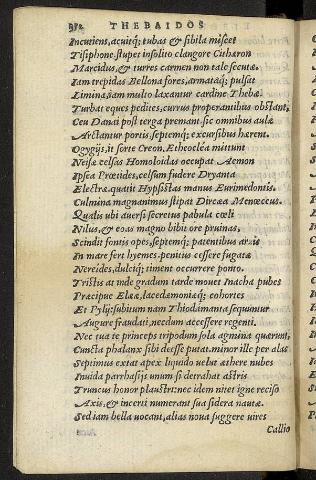 THEBAIDOS
Incutiens, acuitq; tubas & sibila miscet
Tisiphone, stupet insolito clangore Cithæron
Marcidus, & turres carmen non tale secutæ.
Iam trepidas Bellona fores, armataq; pulsat
Limina, iam multo laxantur cardine Thebæ.
Turbat eques pedites, currus properantibus obstant,
Ceu Danai post terga premant. sic omnibus aulæ
Arctantur portis septemq; excursibus hærent.
Ogygijs, it sorte Creon, Etheocléa mittunt
Neisæ celsas Homoloidas occupat Aemon
Ipsea Prœtides, celsum fudere Dryanta
Electræ. quatit Hypsistas manus Eurimedontis.
Culmina magnanimus stipat Dircæa Menœceus.
Qualis ubi auersi secretus pabula cœli
Nilus, & eoas magno bibit ore pruinas,
Scindit fontis opes, septemq; patentibus aruis
In mare fert hyemes. penitus cessere fugatæ
Nereides, dulciq; timent occurrere ponto.
Tristis at inde gradum tarde mouet Inacha pubes
Præcipue Eleæ, lacedæmoniæq; cohortes
Et Pylij: subitum nam Thiodamanta sequuntur
Augure fraudati, necdum accessere regenti.
Nec tua te princeps tripodum sola agmina quærunt,
Cuncta phalanx sibi deesse putat. minor ille per alas
Septimus extat apex liquido uelut æthere nubes
Inuida parrhasijs unum si detrahat astris
Truncus honor plaustri: nec idem nitet igne reciso
Axis, & incerti numerant sua sidera nautæ.
Sed iam bella uocant, alias noua suggere uires
Callio